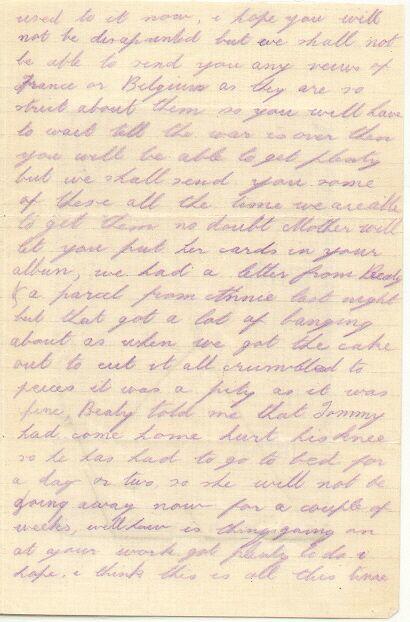 used to it now, i hope you will
not be disapointed but we shall not
be able to send you any views of
France or Belgium as they are so
strict about them so you will have
to wait till the war is over then
you will be able to get plenty
but we shall send you some
of these all the time we are able
to get them no doubt Mother will
let you put her cards in your
album, we had a letter from Beaty
& a parcel from Annie last night
but that got a lot of banging
about as when we got the cake
out to cut it all crumbled to
peices it was a pity as it was
fine, Beaty told me that Tommy
had come home hurt his knee
so he has had to go to bed for
a day or two, so she will not be
going away now for a couple of
weeks, well how is things going on
at your work got plenty to do i
hope. i think this is all this time